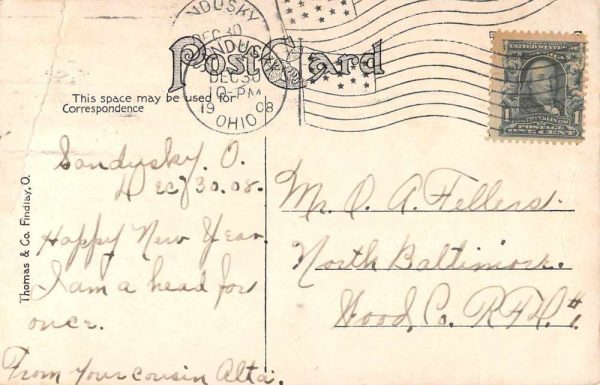 SANDUSKY
DEC 30
Post Card
SANDUSKY
DEC 30
10-PM
1908
OHIO
This space may be used for
Correspondence
POSTAGE
ONE CENT
1 1
Thomas & Co. Findlay, O.
Sandusky, O.
Dec, 30. 08.
Happy New Year.
I am a head for
once.
From your cousin Alta.
Mr. O. A. Fellers.
North Baltimore.
Wood, Co. R.F.D. #1.